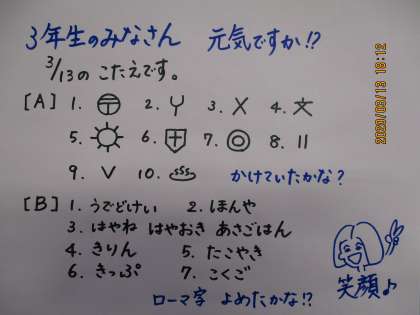 3年生のみなさん 元気ですか!?
3/13の こたえです。
[A] 1. 〶 2. Y 3. X 4. 文
5. 6. 7. ◎ 8. 11
9. V 10. ♨ かけていたかな?
[B] 1. うでどけい 2. ほんや
3. はやね はやおき あさごはん
4. きりん 5. たこやき
6. きっぷ 7. こくご
ローマ字 よめたかな!?
笑顔♪
2020/03/13 13:12